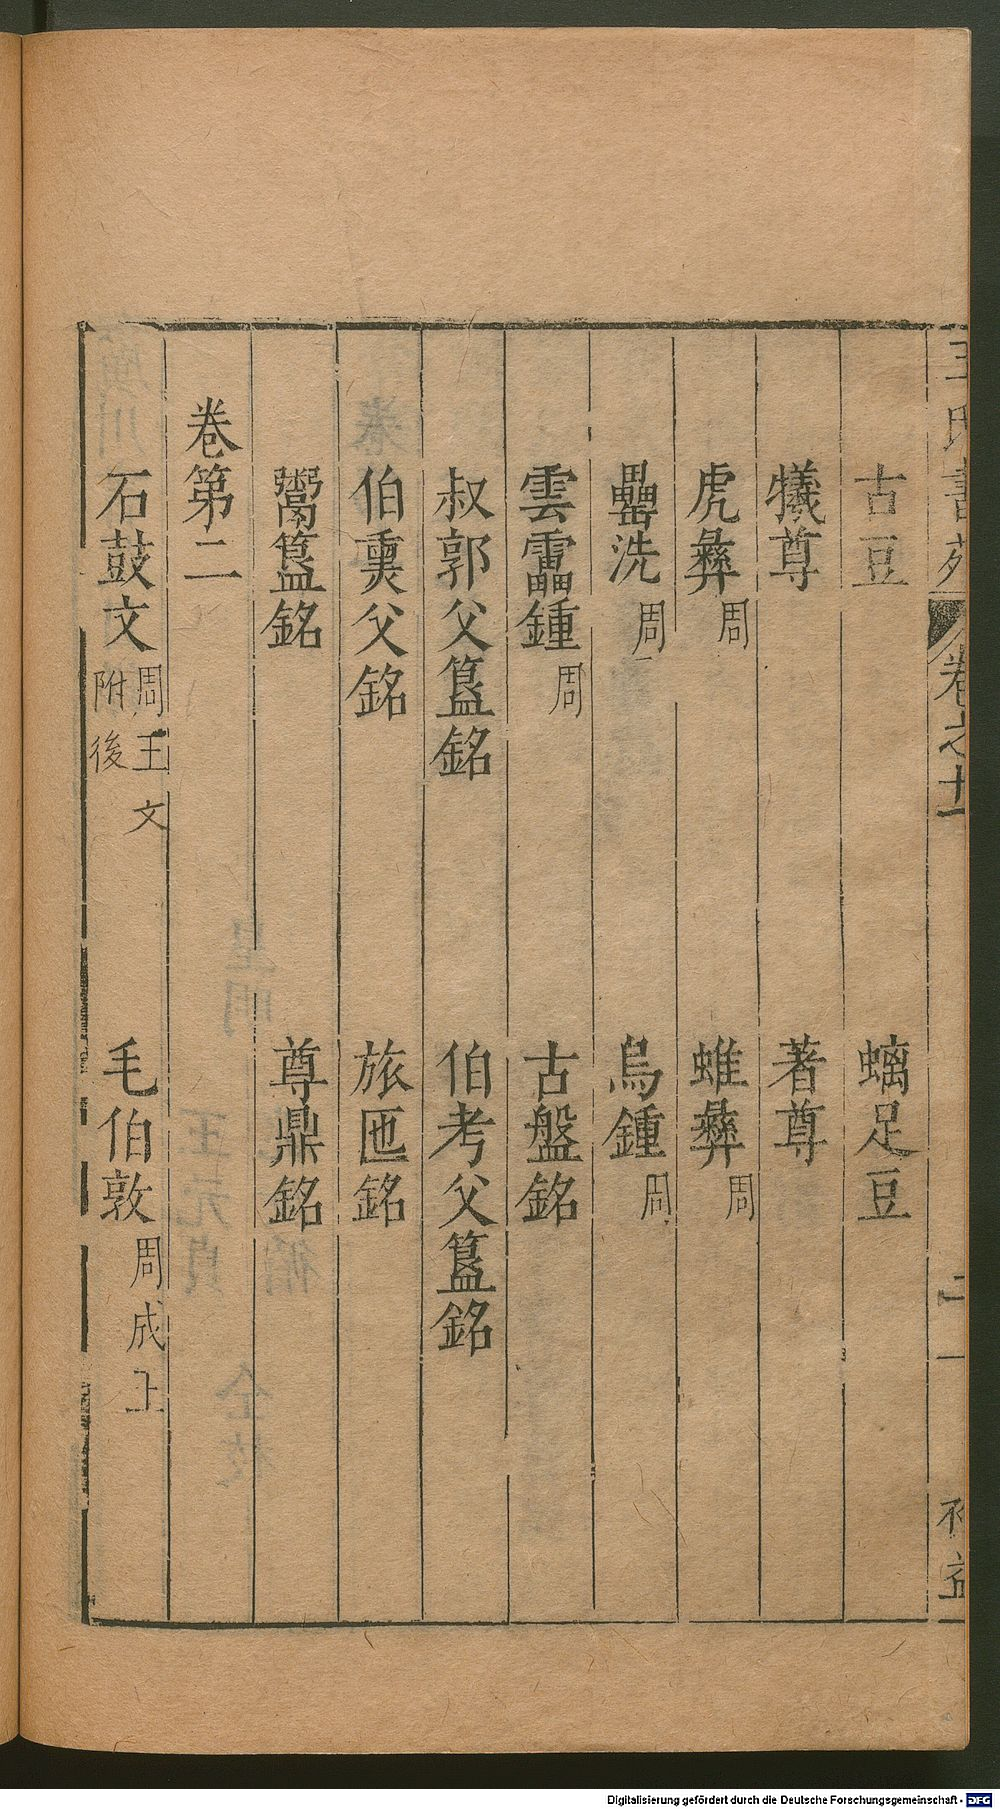 古豆 螭足豆
犧尊 著尊
虎彜周 蜼彜周
罍洗周 鳥鍾周
雲雷鍾周 古盤銘
叔郭父簋銘 伯考父簋銘
伯䙴父銘 旅匜銘
鬻簋銘 尊鼎銘
卷第二
石鼓文周王文附後 毛伯敦周成王
Digitalisierung gefördert durch die Deutsche Forschungsgemeinschaft - DFG